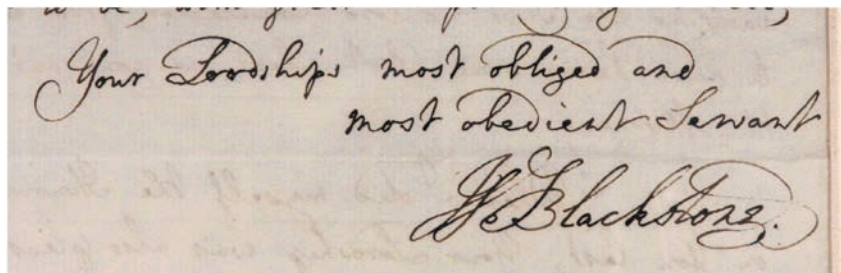 Your Lordships most obliged and
most obedient Servant
W Blackstone.